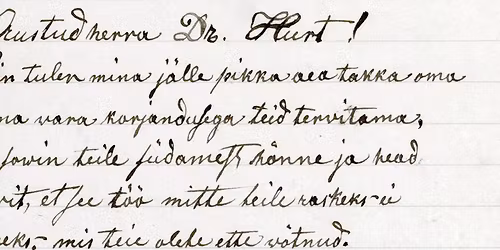 Austud herra Dr. Hurt!
in tulen mina jälle pikka aea takka oma
na vara korjandusega teid tervitama,
sowin teile südamest õnne ja head
vit, et see töö mitte teile raskeks ei
eks, mis teie olete ette võtnud.